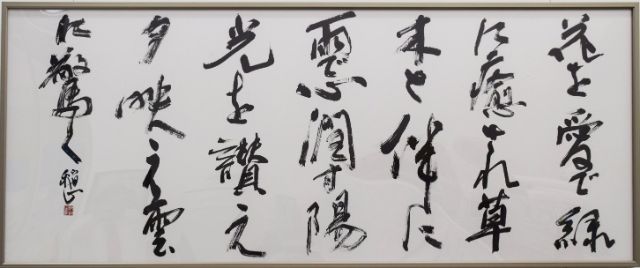 花を愛で緑
に癒され草
木と伴に
雨心潤す陽
光を讃え
夕映え雲
に驚く